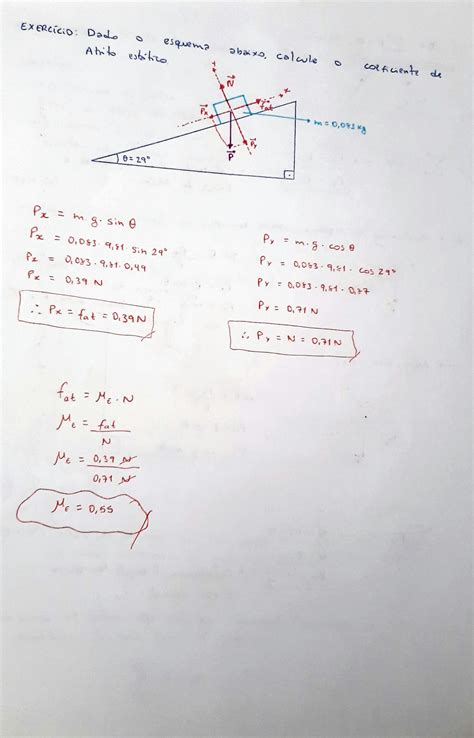 EXERCÍCIO: Dado o esquema abaixo, calcule o coeficiente de
Atrito estático
y
N
x
fat
Px
m = 0,083 kg
Py
P
θ = 29°
Px = m.g.sin θ
Px = 0,083.9,81 sin 29°
Px = 0,083.9,81.0,49
Px = 0,39 N
∴ Px = fat = 0,39 N
Py = m.g.cos θ
Py = 0,083.9,81.cos 29°
Py = 0,083.9,81.0,87
Py = 0,71 N
∴ Py = N = 0,71 N
fat = μE.N
μE = fat
N
μE = 0,39 N
0,71 N
μE = 0,55